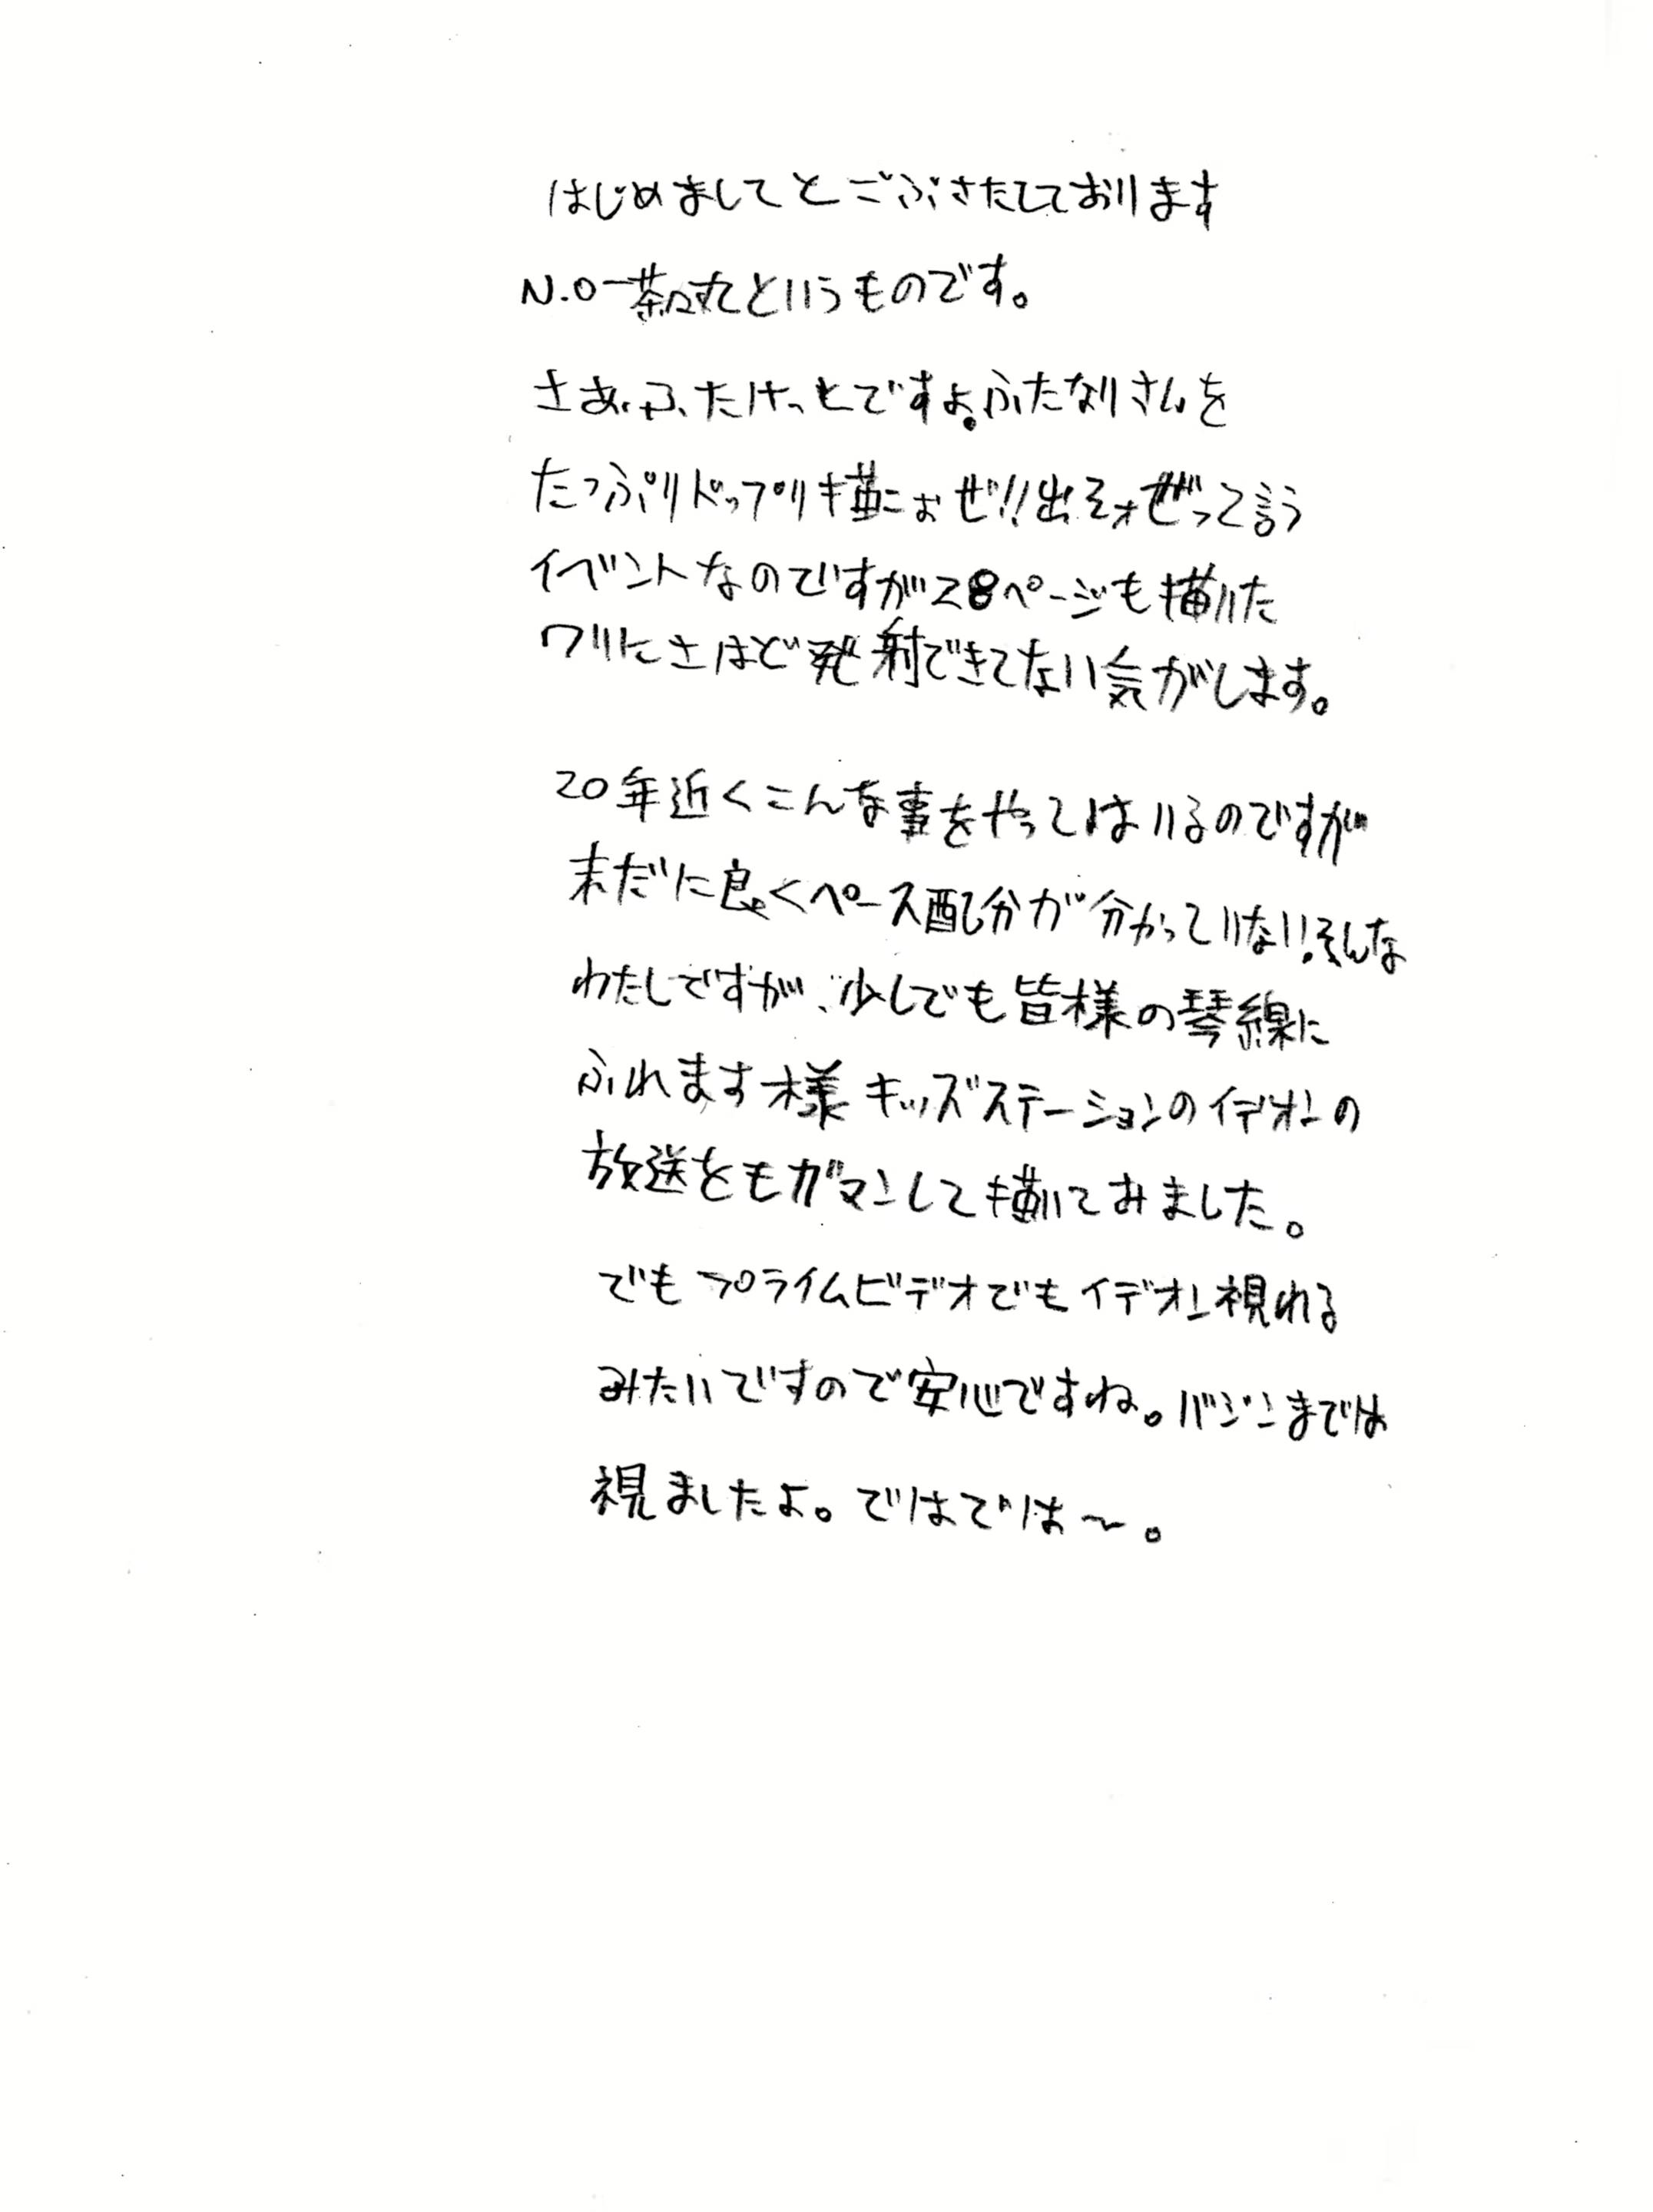 はじめましてと ごぶさたしております
N.O-茶々丸というものです。
さあ、ふたけっとですよ。ふたなりさんを
たっぷりドップリ描こぉぜ!!出そォぜって言う
イベントなのですが28ページも描いた
ワリにさほど発射できてない気がします。
20年近くこんな事をやってはいるのですが
未だに良くペース配分が分かっていない。そんな
わたしですが、少しでも皆様の琴線に
ふれます様 キッズステーションのイデオンの
放送をもガマンして描いてみました。
でもプライムビデオでもイデオン視れる
みたいですので安心ですね。バジンまでは
視ましたよ。ではでは〜。